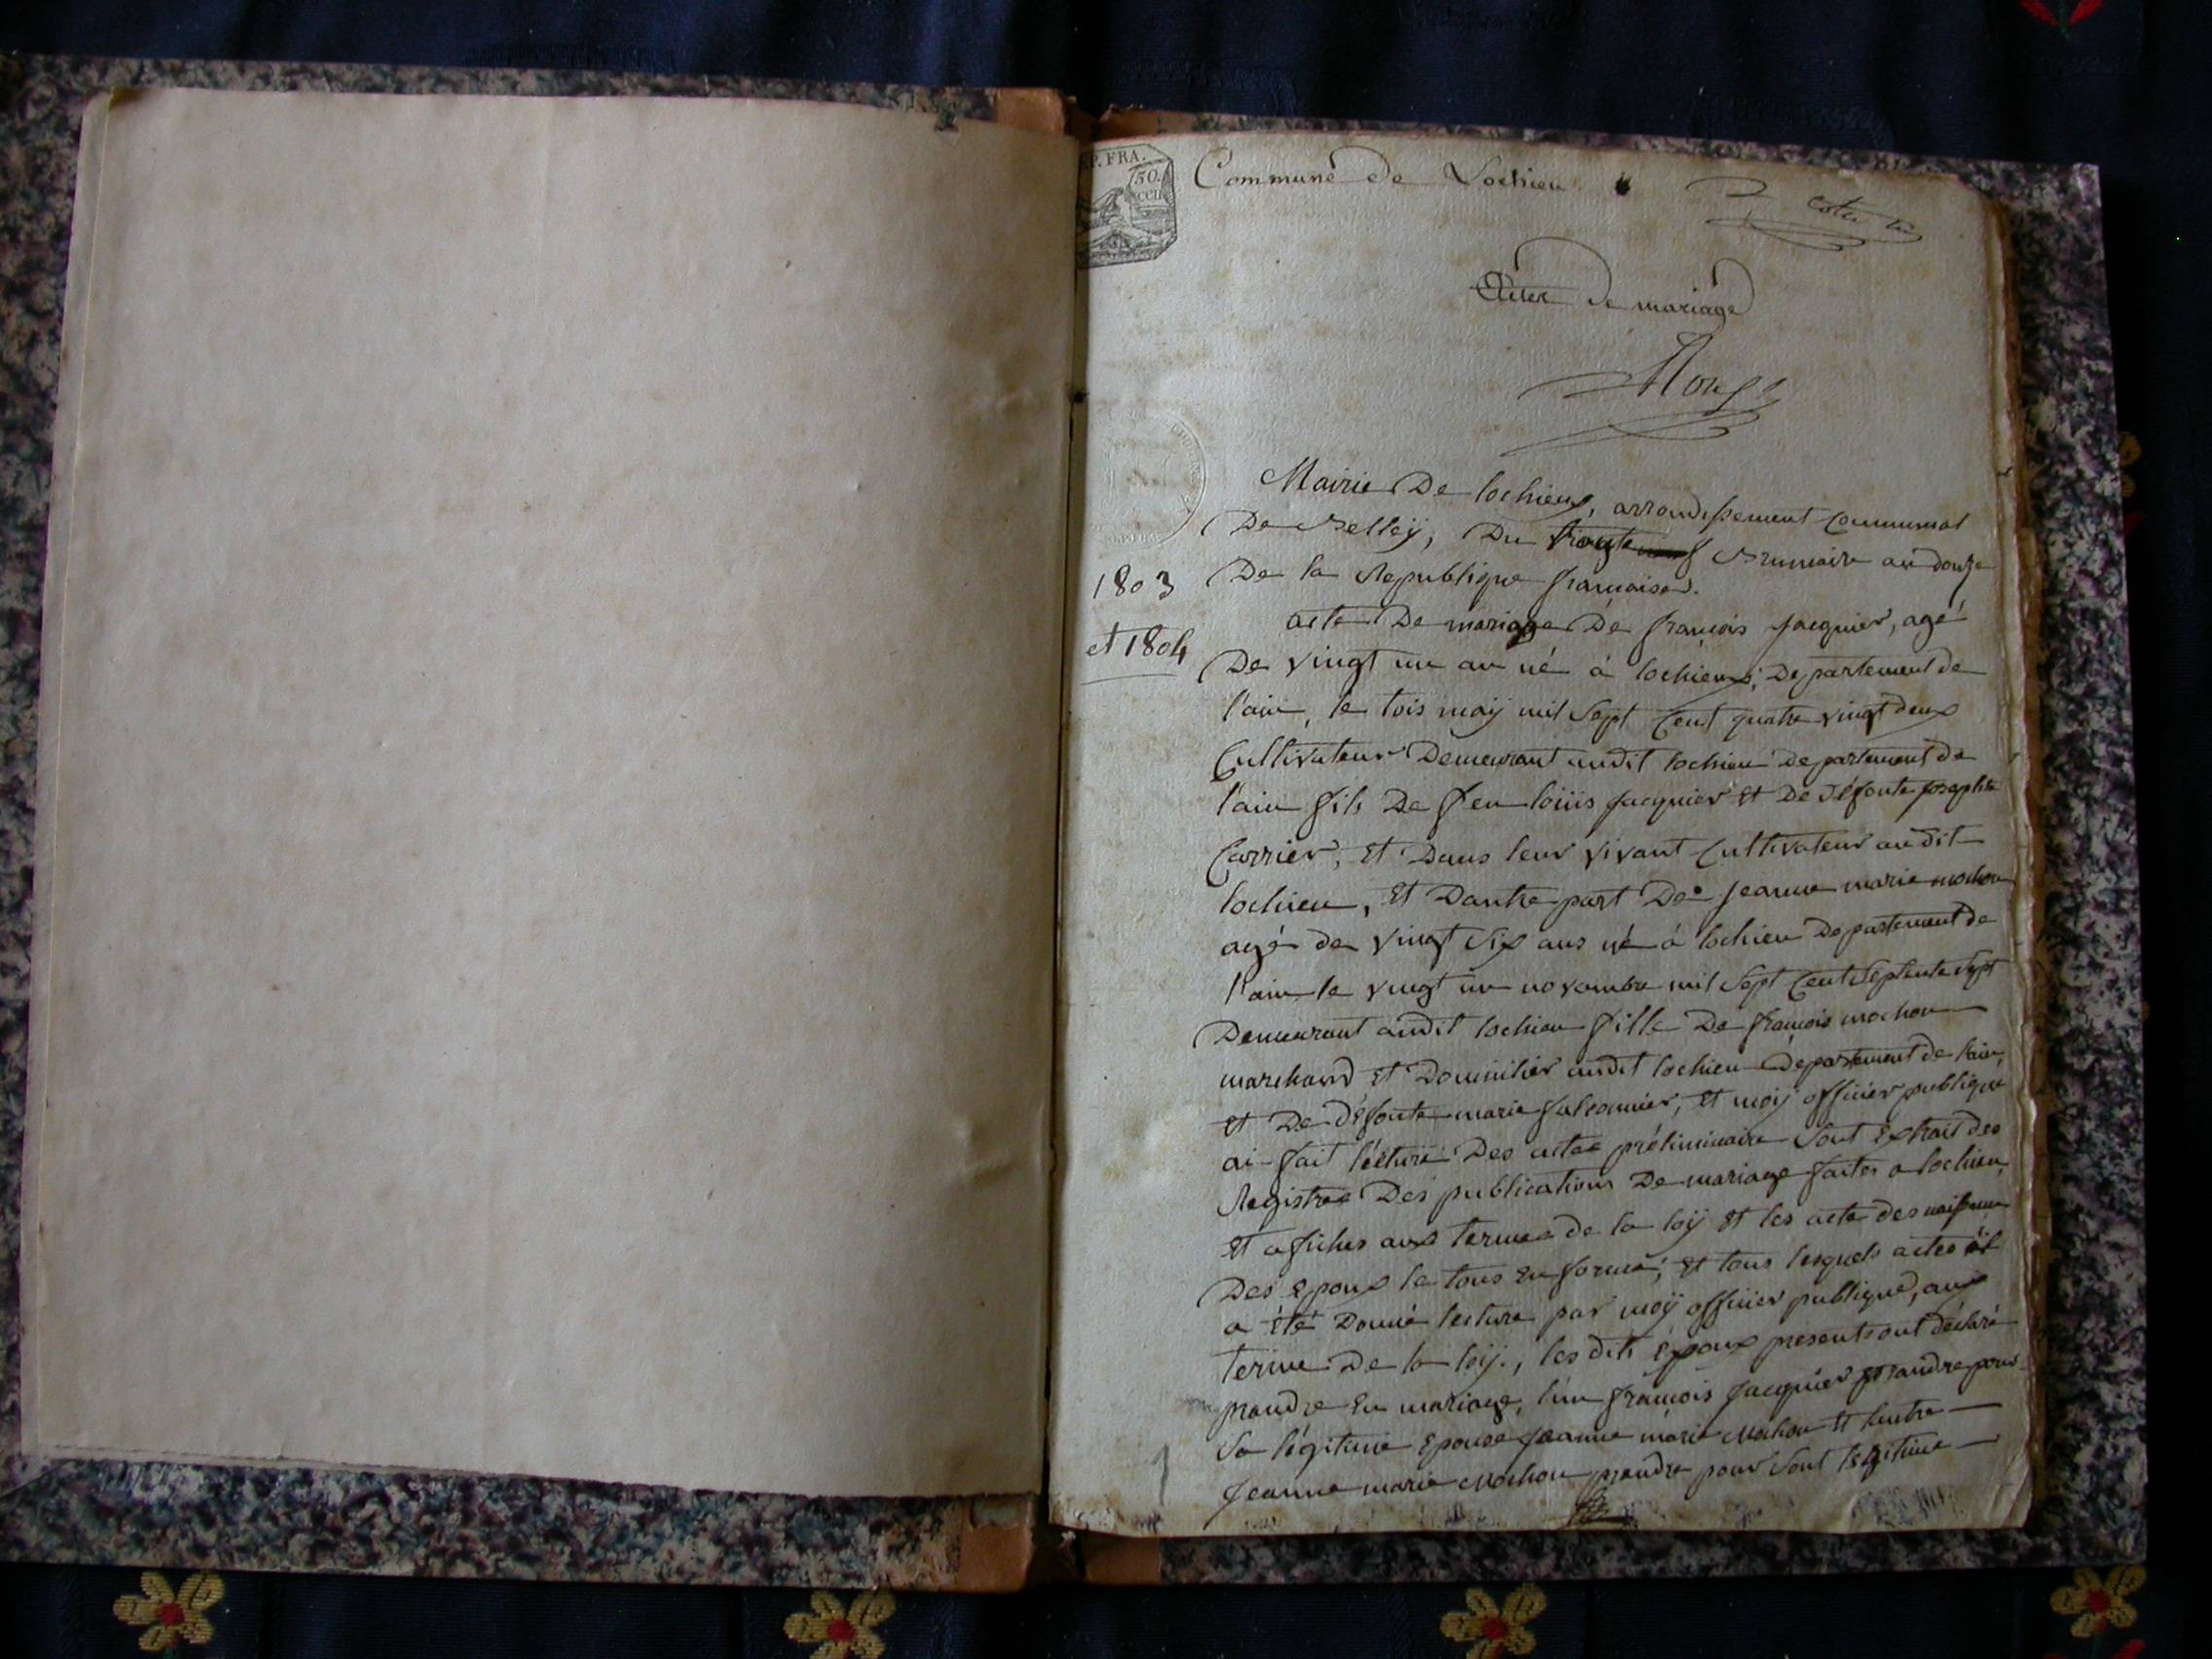 P. FRA.
50.
cen
Commune de Lochieu
Actes de mariage
Mairie De lochieux, arrondissement communal
De Belley, Du Brumaire an douze
De la Republique françaises.
1803
et 1804
acte De mariage De françois jacquier, agé
De vingt un an né à lochieux, Departement de
l'ain, le tois maÿ mil Sept Cent quatre vingt deux
Cultivateur Demeurant audit lochieu departement de
l'ain fils De feu loüis jacquier et De défonte josephte
Carrier, et Dans leur vivant Cultivateur audit
lochieu, et Dautre part De jeanne marie mochon
agé de vingt six ans né à lochieu Departement de
l'ain le vingt un novambre mil Sept Cent Septente Sept
Demeurant audit lochieu fille De françois mochon
marchand et Domicilier audit lochieu Departement de l'ain,
et De défonte marie falconnier, et moÿ officier publique
ai fait lecture Des actes préliminaire Sont Extrait des
Registres Des publications De mariage faites a lochieu,
et afiches aux termes de la loÿ et les acte des naissance
Des Epoux le tous en forme, et tous lesquels actes il
a été Donné lecture par moÿ officier publique, aux
terme De la loÿ., les dits époux presents ont déclaré
prandre En mariage, l'un françois jacquier prandre pour
Sa légitime Epouse jeanne marie Mochon et lautre
jeanne marie Mochon prandre pour Sont légitime